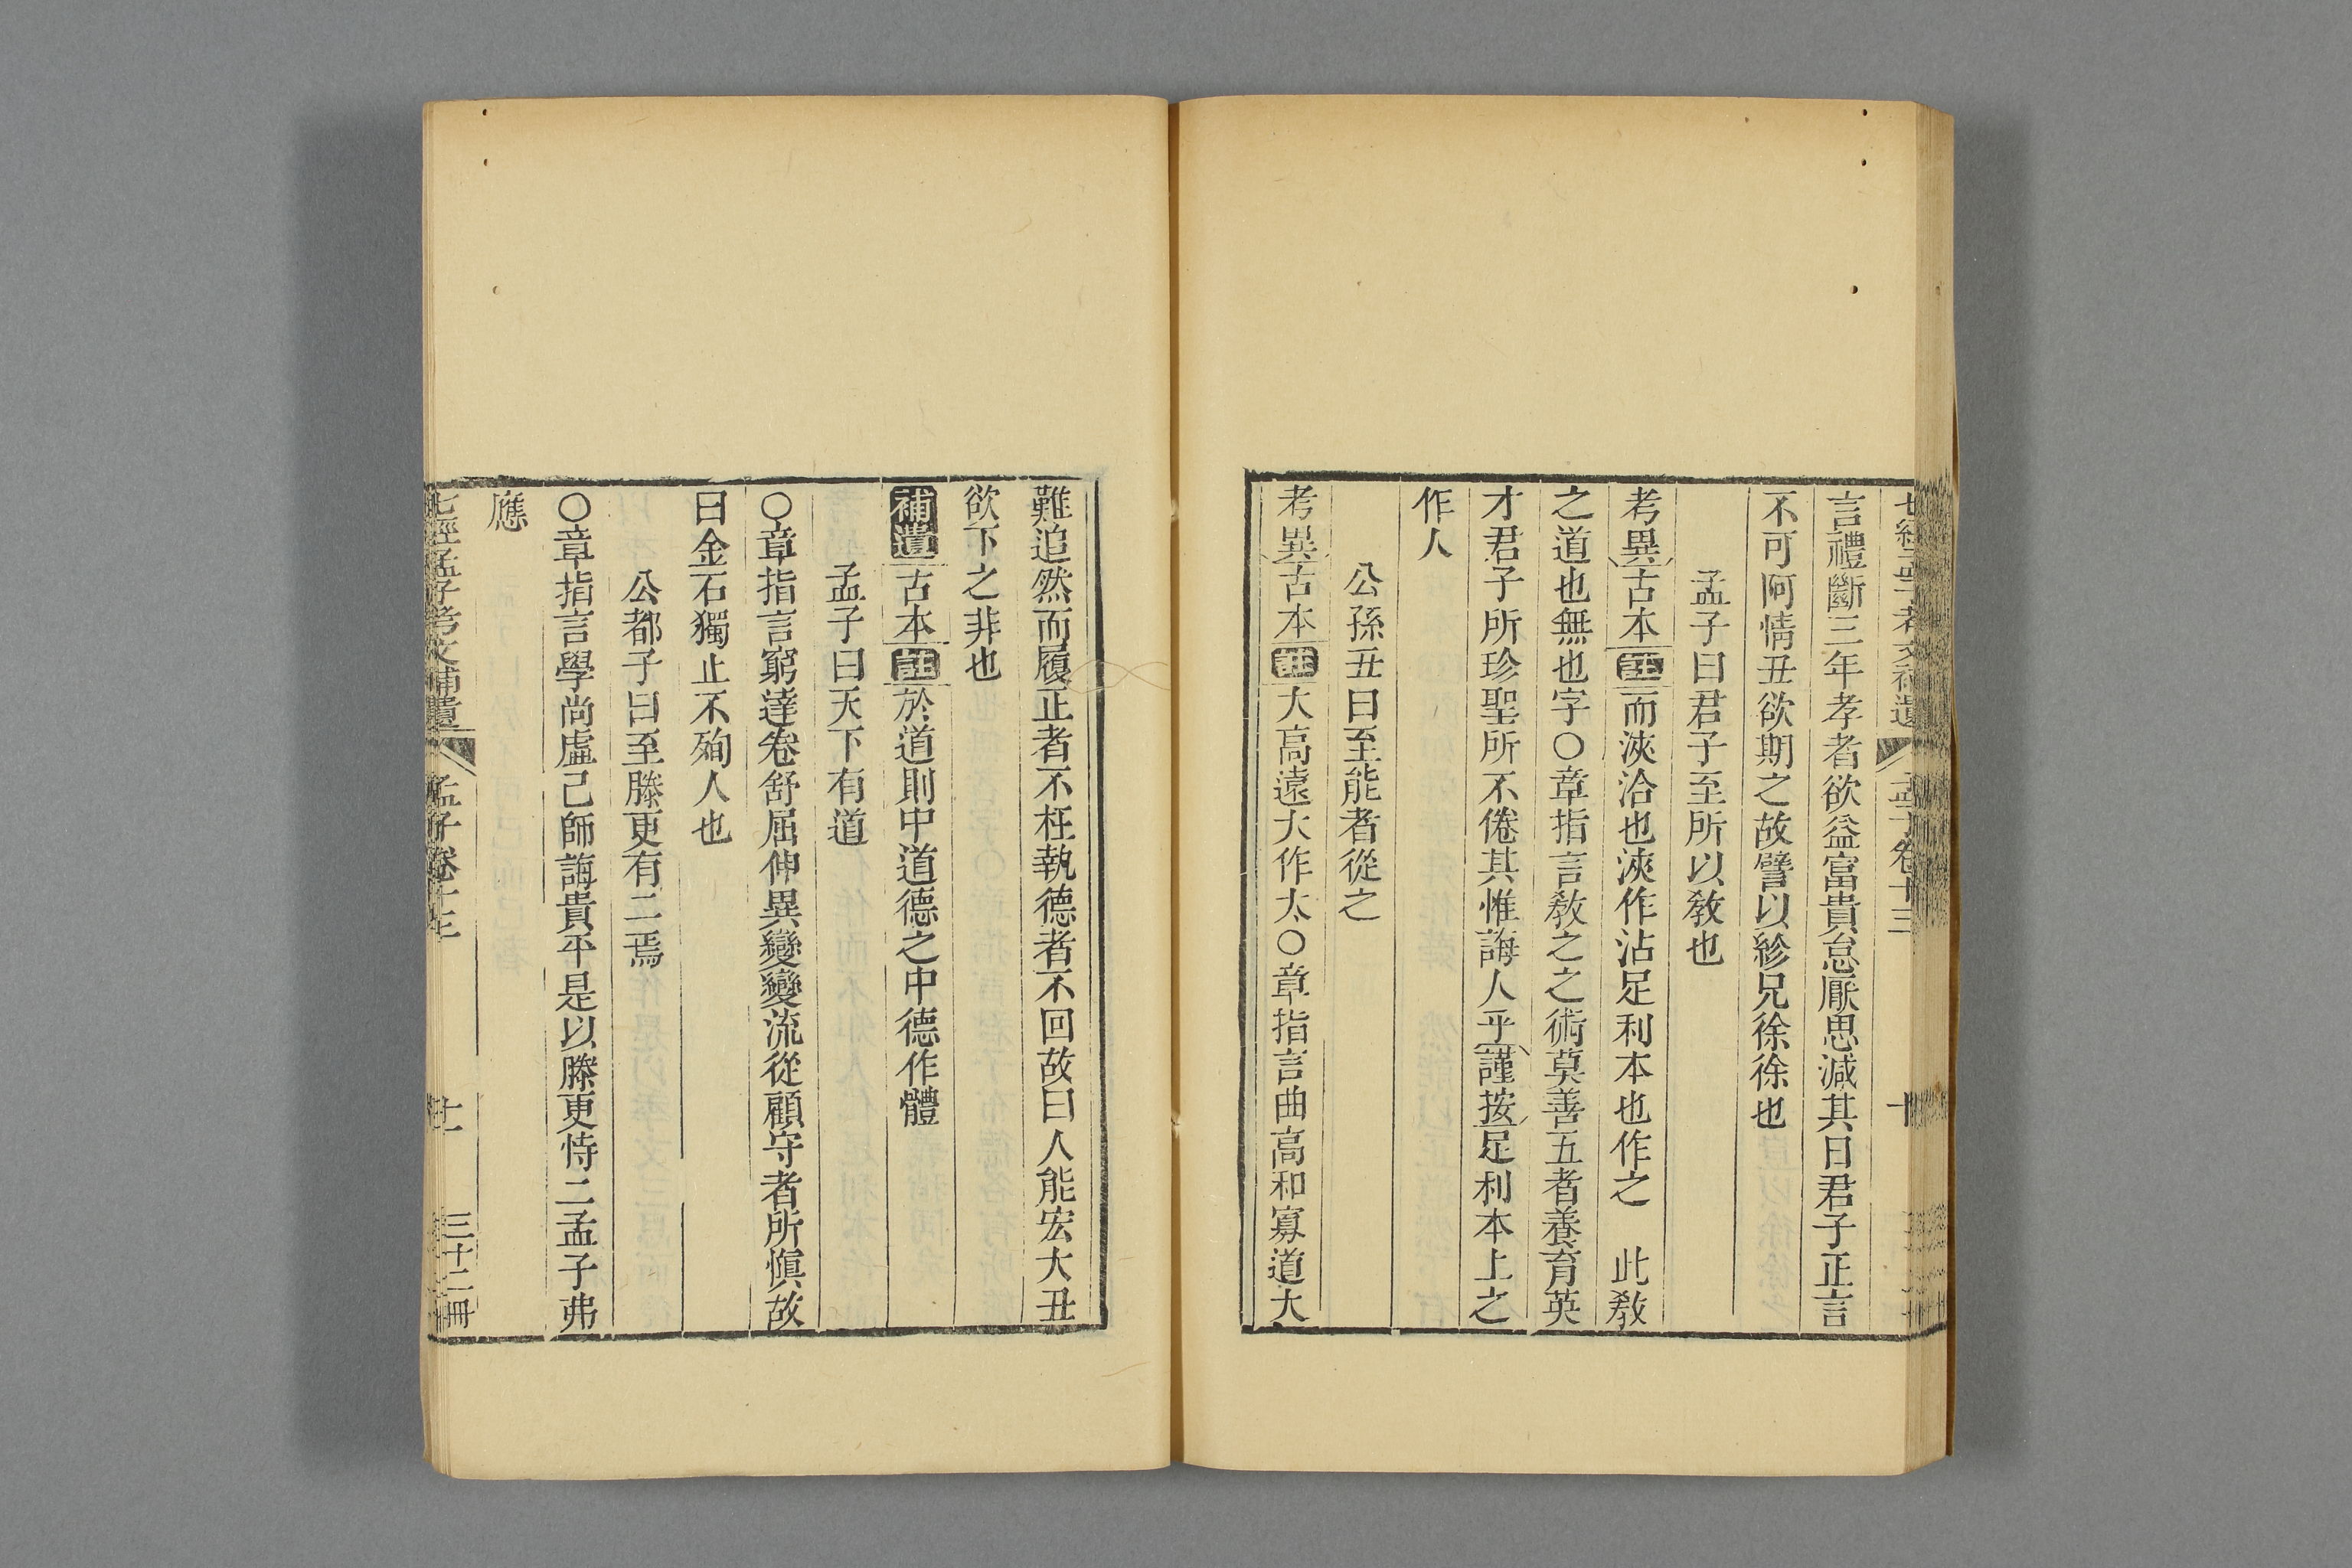 七經孟子考文補遺 孟子卷十三 十
言禮斷三年孝者欲益富貴怠厭思減其日君子正言
不可阿情丑欲期之故譬以紾兄徐徐也
孟子曰君子至所以敎也
考異古本註而浹洽也浹作沾足利本也作之 此敎
之道也無也字〇章指言敎之之術莫善五者養育英
才君子所珍聖所不倦其惟誨人乎謹按足利本上之
作人
公孫丑曰至能者從之
考異古本註大高遠大作太〇章指言曲高和寡道大
難追然而履正者不枉執德者不回故曰人能宏大丑
欲下之非也
補遺古本註於道則中道德之中德作體
孟子曰天下有道
〇章指言窮達卷舒屈伸異變變流從顧守者所愼故
曰金石獨止不殉人也
公都子曰至滕更有二焉
〇章指言學尚虛己師誨貴平是以滕更恃二孟子弗
應
七經孟子考文補遺 孟子卷十三 十一 三十二冊